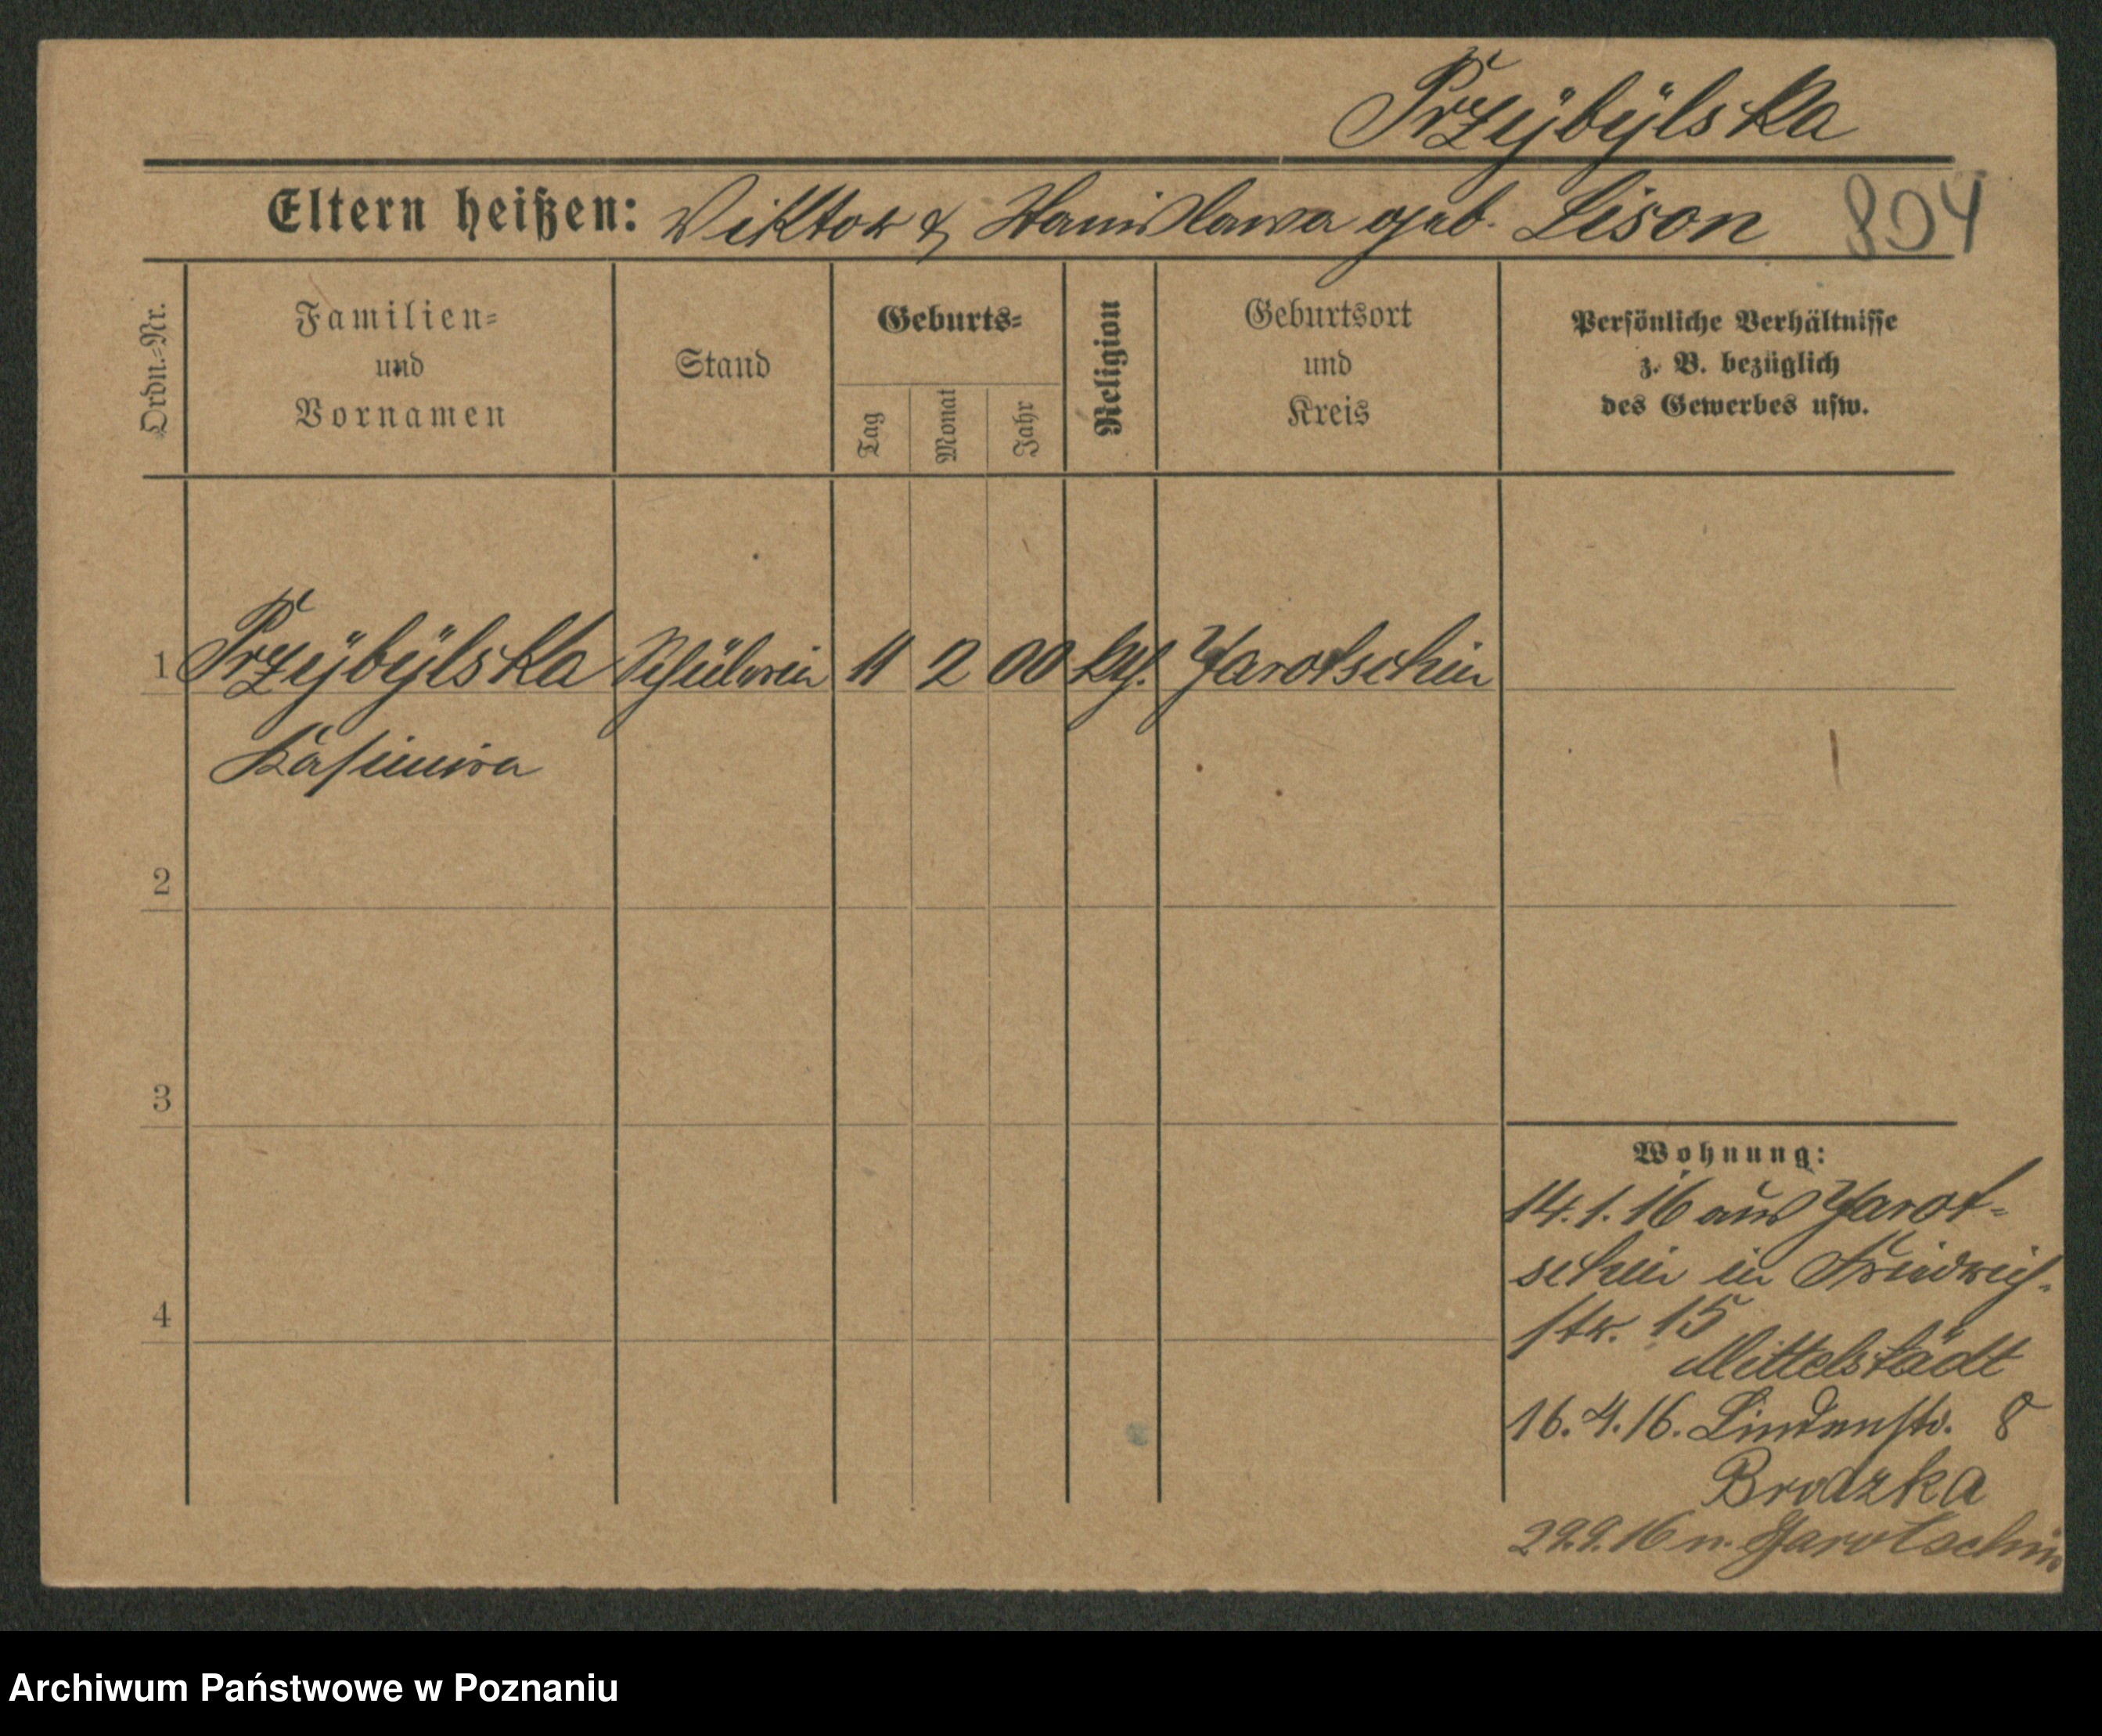 Przÿbÿlska
Eltern heißen: Viktor & Stanislawa geb. Lison 804
Ordn.-Nr.
Familien-
und
Vornamen
Stand
Geburts-
Tag
Monat
Jahr
Religion
Geburtsort
und
Kreis
Persönliche Verhältnisse
z. B. bezüglich
des Gewerbes usw.
1 Przÿbÿlska Schülerin 11 2 00 kth. Jarotschin
Kasimira
2
3
4
Wohnung:
14.1.16 aus Jarot-
schin in Friedrich-
str. 15
Mittelstädt
16.4.16. Lindenstr. 8
Brodzka
29.9.16 n. Jarotschin
Archiwum Państwowe w Poznaniu